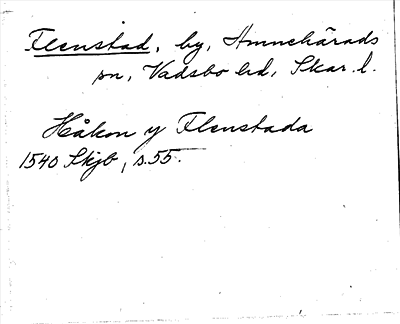 Flenstad, by, Amnehärads
sn, Vadsbo hd, Skar. l.
Håkon y Flenstada
1540 Skjb, s. 55.